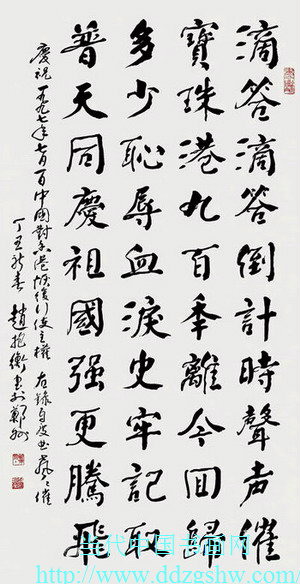 滴答滴答倒計時聲声催
寶珠港九百年離今囬歸
多少恥辱血淚史牢記耻
普天同慶祖國强更騰飛
慶祝一九九七年七月一日中國對香港恢復行使主權 右録自度曲
丁丑新春 趙抱衡书於鄭州
当代中国书画网
http://www.ddzgshw.com/